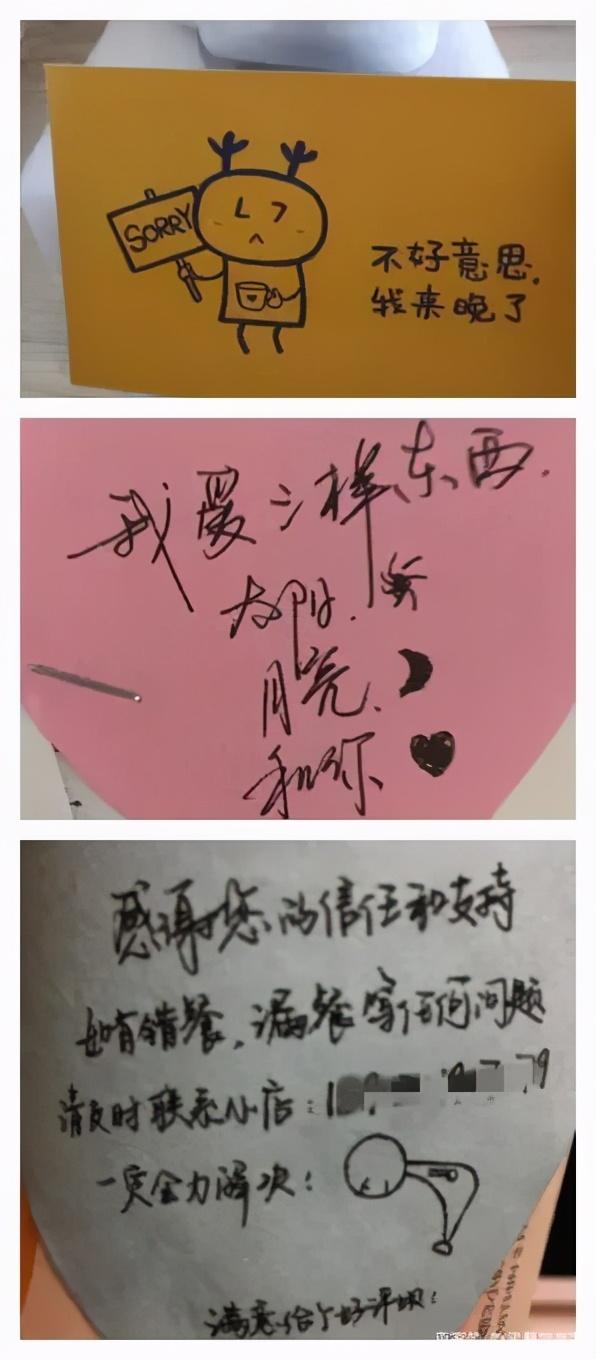 SORRY
不好意思,
我来晚了
我爱三样东西.
太阳.
月亮.
和你
感谢您的信任和支持
如有错餐,漏餐等任何问题
请及时联系小店:
一定全力解决!
满意给个好评呗!